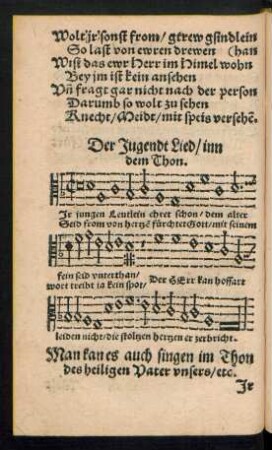 Wolt jr sonst from/ gtrew gsindlein
So last von ewren drewen (han
Wist das ewr Herr im Himel wohn
Bey jm ist kein ansehen
Vñ fragt gar nicht nach der person
Darumb so wolt zu sehen
Knecht/ Meidt/ mit speis versehẽ.
Der Jugendt Lied/ inn
dem Thon.
Jr jungen Leutlein ehret schon/ dem alter
Seid from von hertzẽ fürchtet Gott/ mit seinem
fein seid vnterthan/
wort treibt ja kein spot/ Der HErr kan hoffart
leiden nicht/ die stoltzen hertzen er zerbricht.
Man kan es auch singen im Thon
des heiligen Vater vnsers/ etc.
Jr